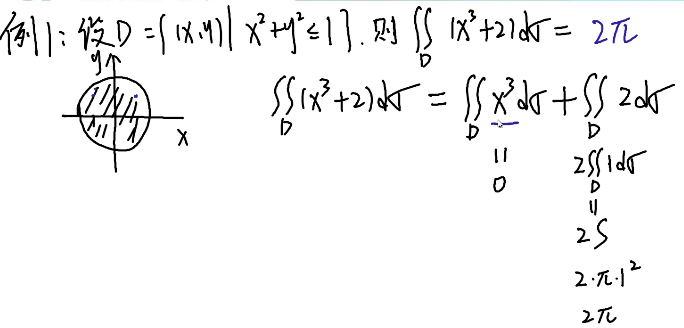 例1: 设D={(x,y)|x²+y²≤1}. 则 ∬_D (x³+2)dσ = 2π
y
x
∬_D (x³+2)dσ = ∬_D x³dσ + ∬_D 2dσ
॥ 2∬_D 1dσ
0 ॥
2S
2·π·1²
2π